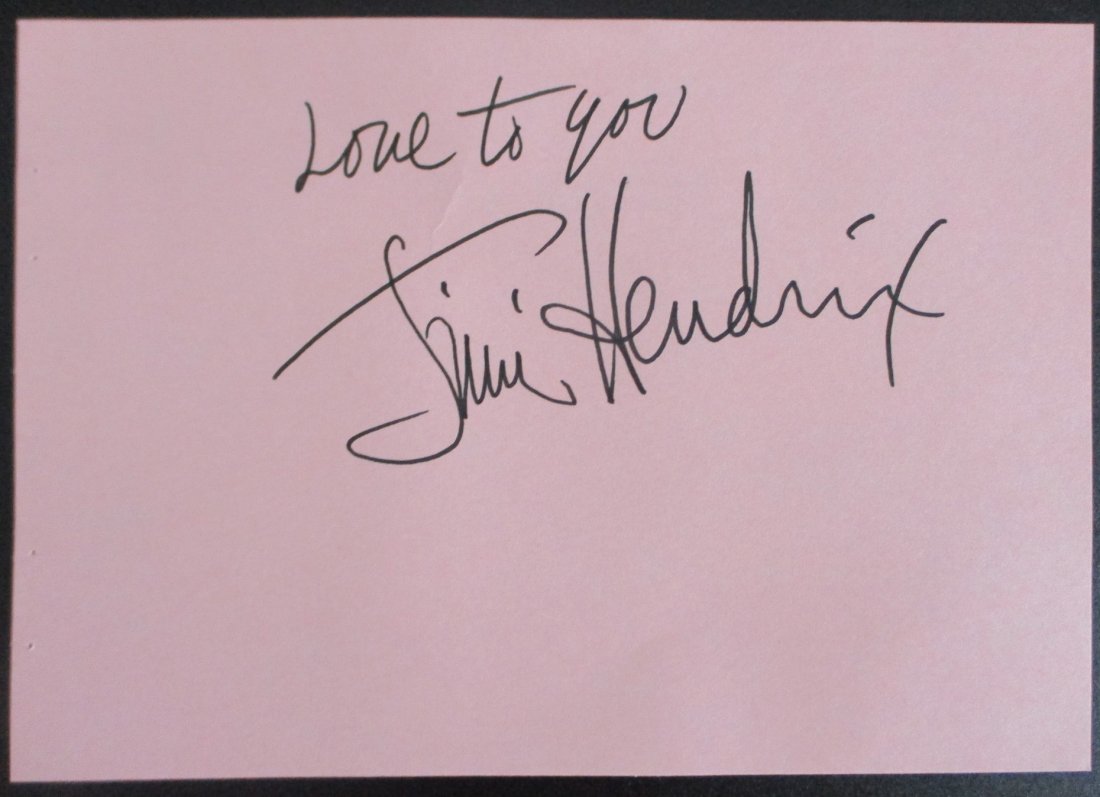 Love to you
Jimi Hendrix